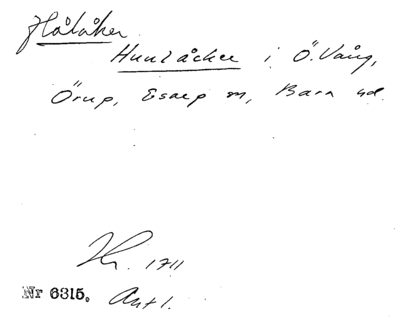 Hålåker
Hunlåcker i Ö. Vång,
Örup, Esarp m, Bara hd.
Nr 6315. Ant 1.